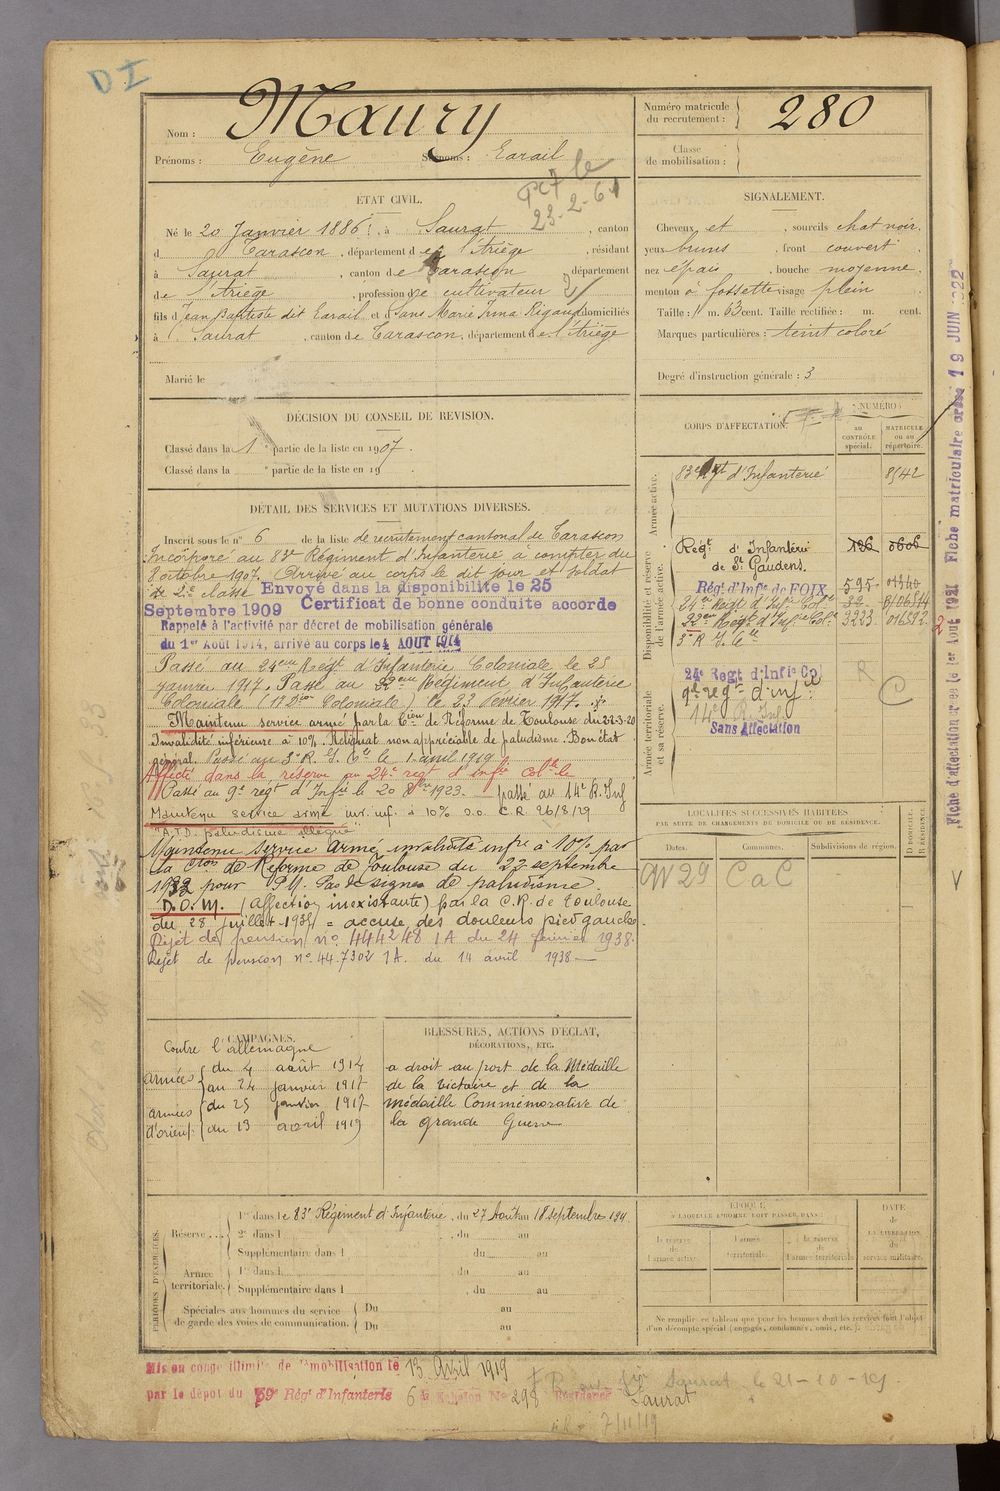 DI
Nom : Maury
Prénoms : Eugène Surnoms : Larail
Numéro matricule du recrutement : 280
Classe de mobilisation :
23-2-61
ETAT CIVIL.
Né le 20 Janvier 1886, à Saurat, canton
d Tarascon, département de l'Ariège, résidant
à Saurat, canton de Tarascon, département
de l'Ariège, profession de cultivateur
fils d Jean Baptiste dit Larail et d Jane Marie Irma Rigaud domiciliés
à Saurat, canton de Tarascon, département de l'Ariège
Marié le
SIGNALEMENT.
Cheveux et, sourcils chat noir.
yeux bruns, front couvert
nez épais, bouche moyenne.
menton à fossette visage plein
Taille : 1 m. 63 cent. Taille rectifiée : m. cent.
Marques particulières : teint coloré
Degré d'instruction générale : 3
DÉCISION DU CONSEIL DE REVISION.
Classé dans la 1e partie de la liste en 1907.
Classé dans la e partie de la liste en 19
DÉTAIL DES SERVICES ET MUTATIONS DIVERSES.
Inscrit sous le n° 6 de la liste de recrutement cantonal de Tarascon
Incorporé au 83e Régiment d'Infanterie à compter du
8 octobre 1907. Arrivé au corps le dit jour et soldat
de 2e classe Envoyé dans la disponibilité le 25
Septembre 1909 Certificat de bonne conduite accordé
Rappelé à l'activité par décret de mobilisation générale
du 1er Août 1914, arrivé au corps le 4 AOUT 1914
Passé au 24eme Régt d'Infanterie Coloniale le 25
janvier 1917. Passé au 22eme Régiment d'Infanterie
Coloniale (1e Don Coloniale) le 23 Février 1917.
Maintenu service armé par la Cion de Réforme de Toulouse du 22-3-20
Invalidité inférieure à 10% Reliquat non appréciable de paludisme. Bon état
général. Passé au 3e R. I. Cle le 1 avril 1919
Affecté dans la réserve au 24e regt d'infie colle le
Passé au 9e régt d'Infie le 20 8bre 1923. passé au 14e R. Inf
Maintenu service armé inv. inf. à 10% C.R. 26/8/29
"A.T.D. paludisme allégué"
Maintenu Service Armé invalidité infre à 10% par
la Cion de Réforme de Toulouse du 22 septembre
1932 pour P.M. Pas de signes de paludisme.
D.O.M. (affection inexistante) par la C.R. de Toulouse
du 28 juillet 1934 = accuse des douleurs pied gauche.
Rejet de pension n° 444248 1A du 24 février 1938.
Rejet de pension n° 44.7302 1A. du 14 avril 1938
CORPS D'AFFECTATION.
NUMÉRO
au CONTRÔLE spécial.
MATRICULE ou au répertoire.
Armée active.
83e Rgt d'Infanterie 8542
Disponibilité et réserve de l'armée active.
Régt d'Infanterie 126 0606
de St Gaudens.
Régt d'Infie de FOIX 595 01340
24eme Régt d'Infie Cole 32
22eme Régt d'Infie Cole 3223 016592
3e R. I. Cle
Armée territoriale et sa réserve.
24e Regt d'Infie Col
9e reg d'infie
14e R. Inf.
Sans Affectation
R
C
Fiche d'affectation créée le 1er Août 1921 Fiche matriculaire créée 19 JUIN 1922
LOCALITÉS SUCCESSIVES HABITÉES
PAR SUITE DE CHANGEMENTS DE DOMICILE OU DE RÉSIDENCE.
Dates. Communes. Subdivisions de région. D DOMICILE R RÉSIDENCE.
29 CaC
CAMPAGNES.
Contre l'allemagne
armées du 4 août 1914
au 24 janvier 1917
armées du 25 janvier 1917
d'orient du 13 avril 1919
BLESSURES, ACTIONS D'ÉCLAT,
DÉCORATIONS, ETC.
a droit au port de la Médaille
de la Victoire et de la
médaille Commémorative de
la grande Guerre
PÉRIODES D'EXERCICES.
Réserve 1re dans le 83e Régiment d'Infanterie, du 27 Août au 18 septembre 191
2e dans l , du au
Supplémentaire dans l du au
Armée territoriale. 1re dans l du au
Supplémentaire dans l , du au
Spéciales aux hommes du service de garde des voies de communication. Du au
Du au
ÉPOQUE
À LAQUELLE L'HOMME DOIT PASSER DANS :
la réserve de l'armée active. l'armée territoriale. la réserve de l'armée territoriale.
DATE de LA LIBÉRATION du service militaire.
Ne remplir ce tableau que pour les hommes dont les services font l'objet
d'un décompte spécial (engagés, condamnés, omis, etc.).
Mis en congé illimité de démobilisation le 13 Avril 1919
par le dépôt du 59e Régt d'Infanterie 6e Echelon N° 298 Résidence Saurat
Saurat le 21-10-19.
7/11/19